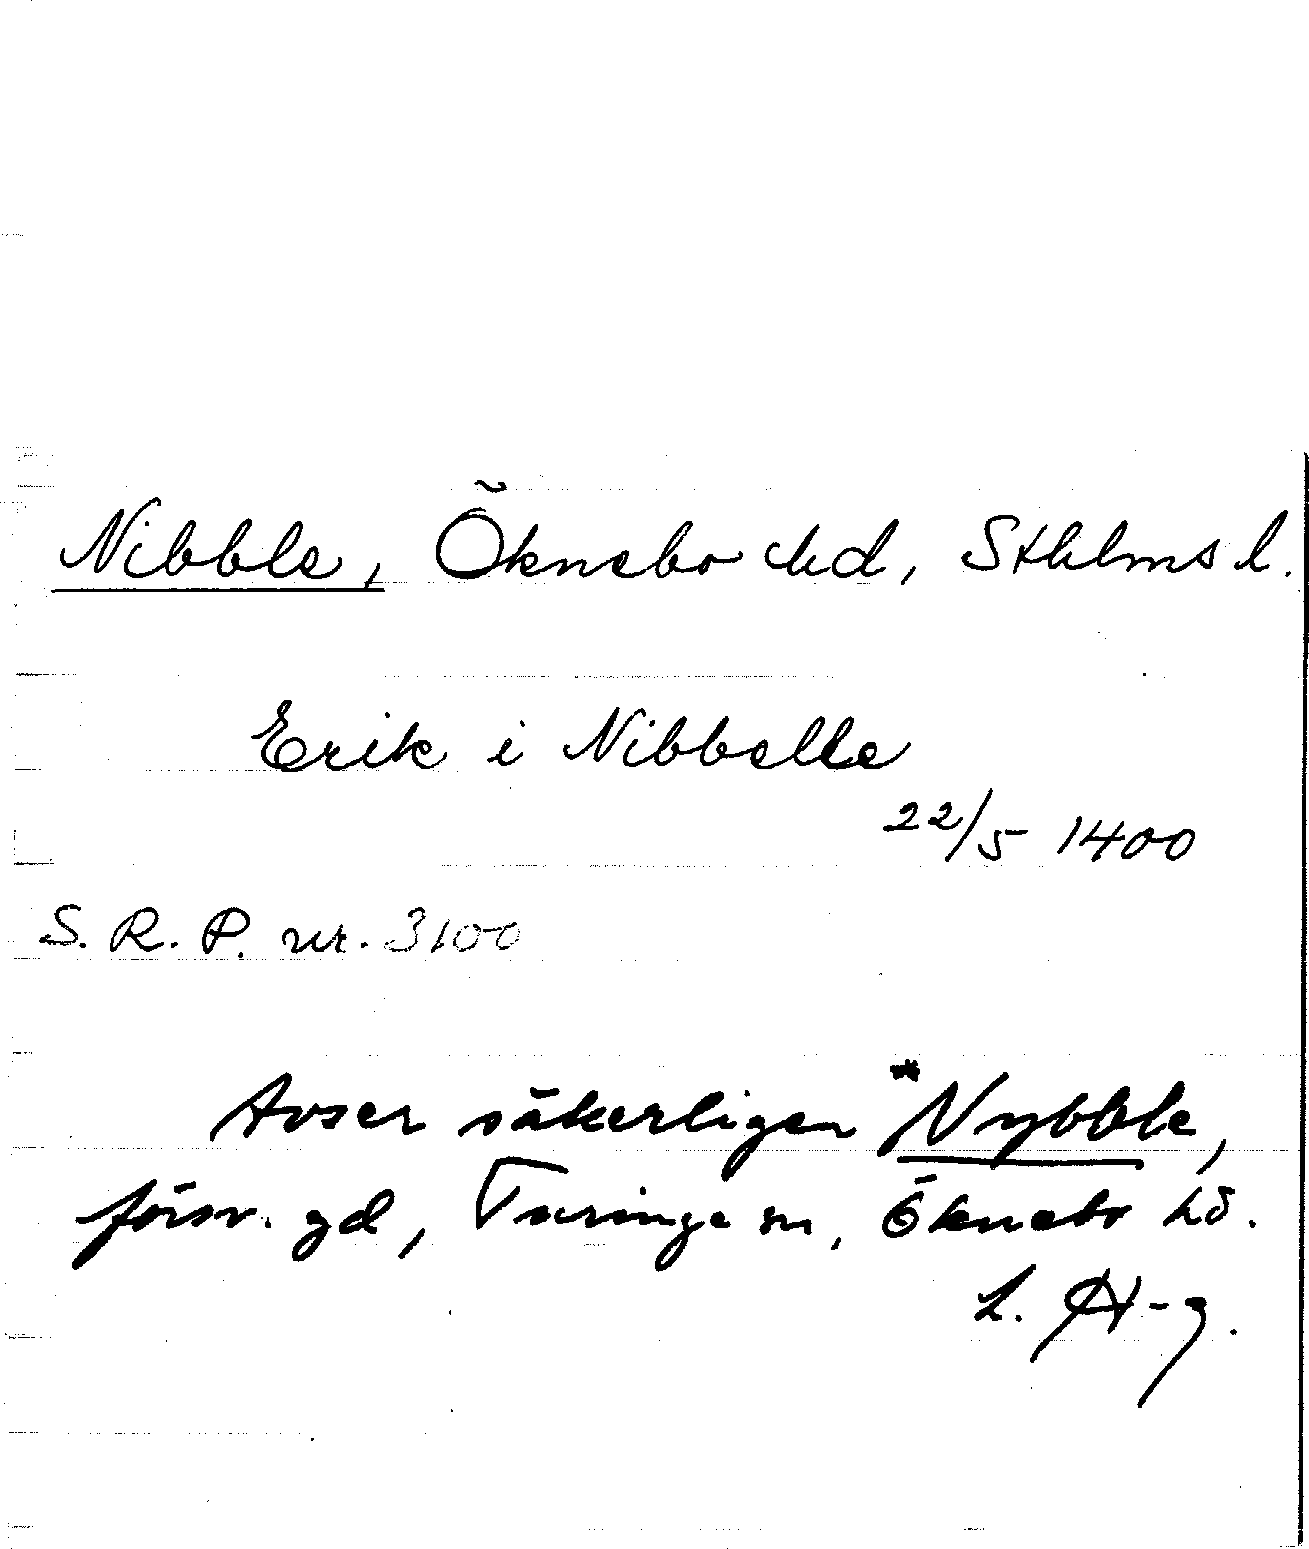 Nibble, Öknebo hd, Sthlms l.
Erik i Nibbelle
22/5 1400
S. R. P. nr. 3100
Avser säkerligen *Nybble,
försv. gd, Turinge sn, Öknebo hd.
L. H-g.